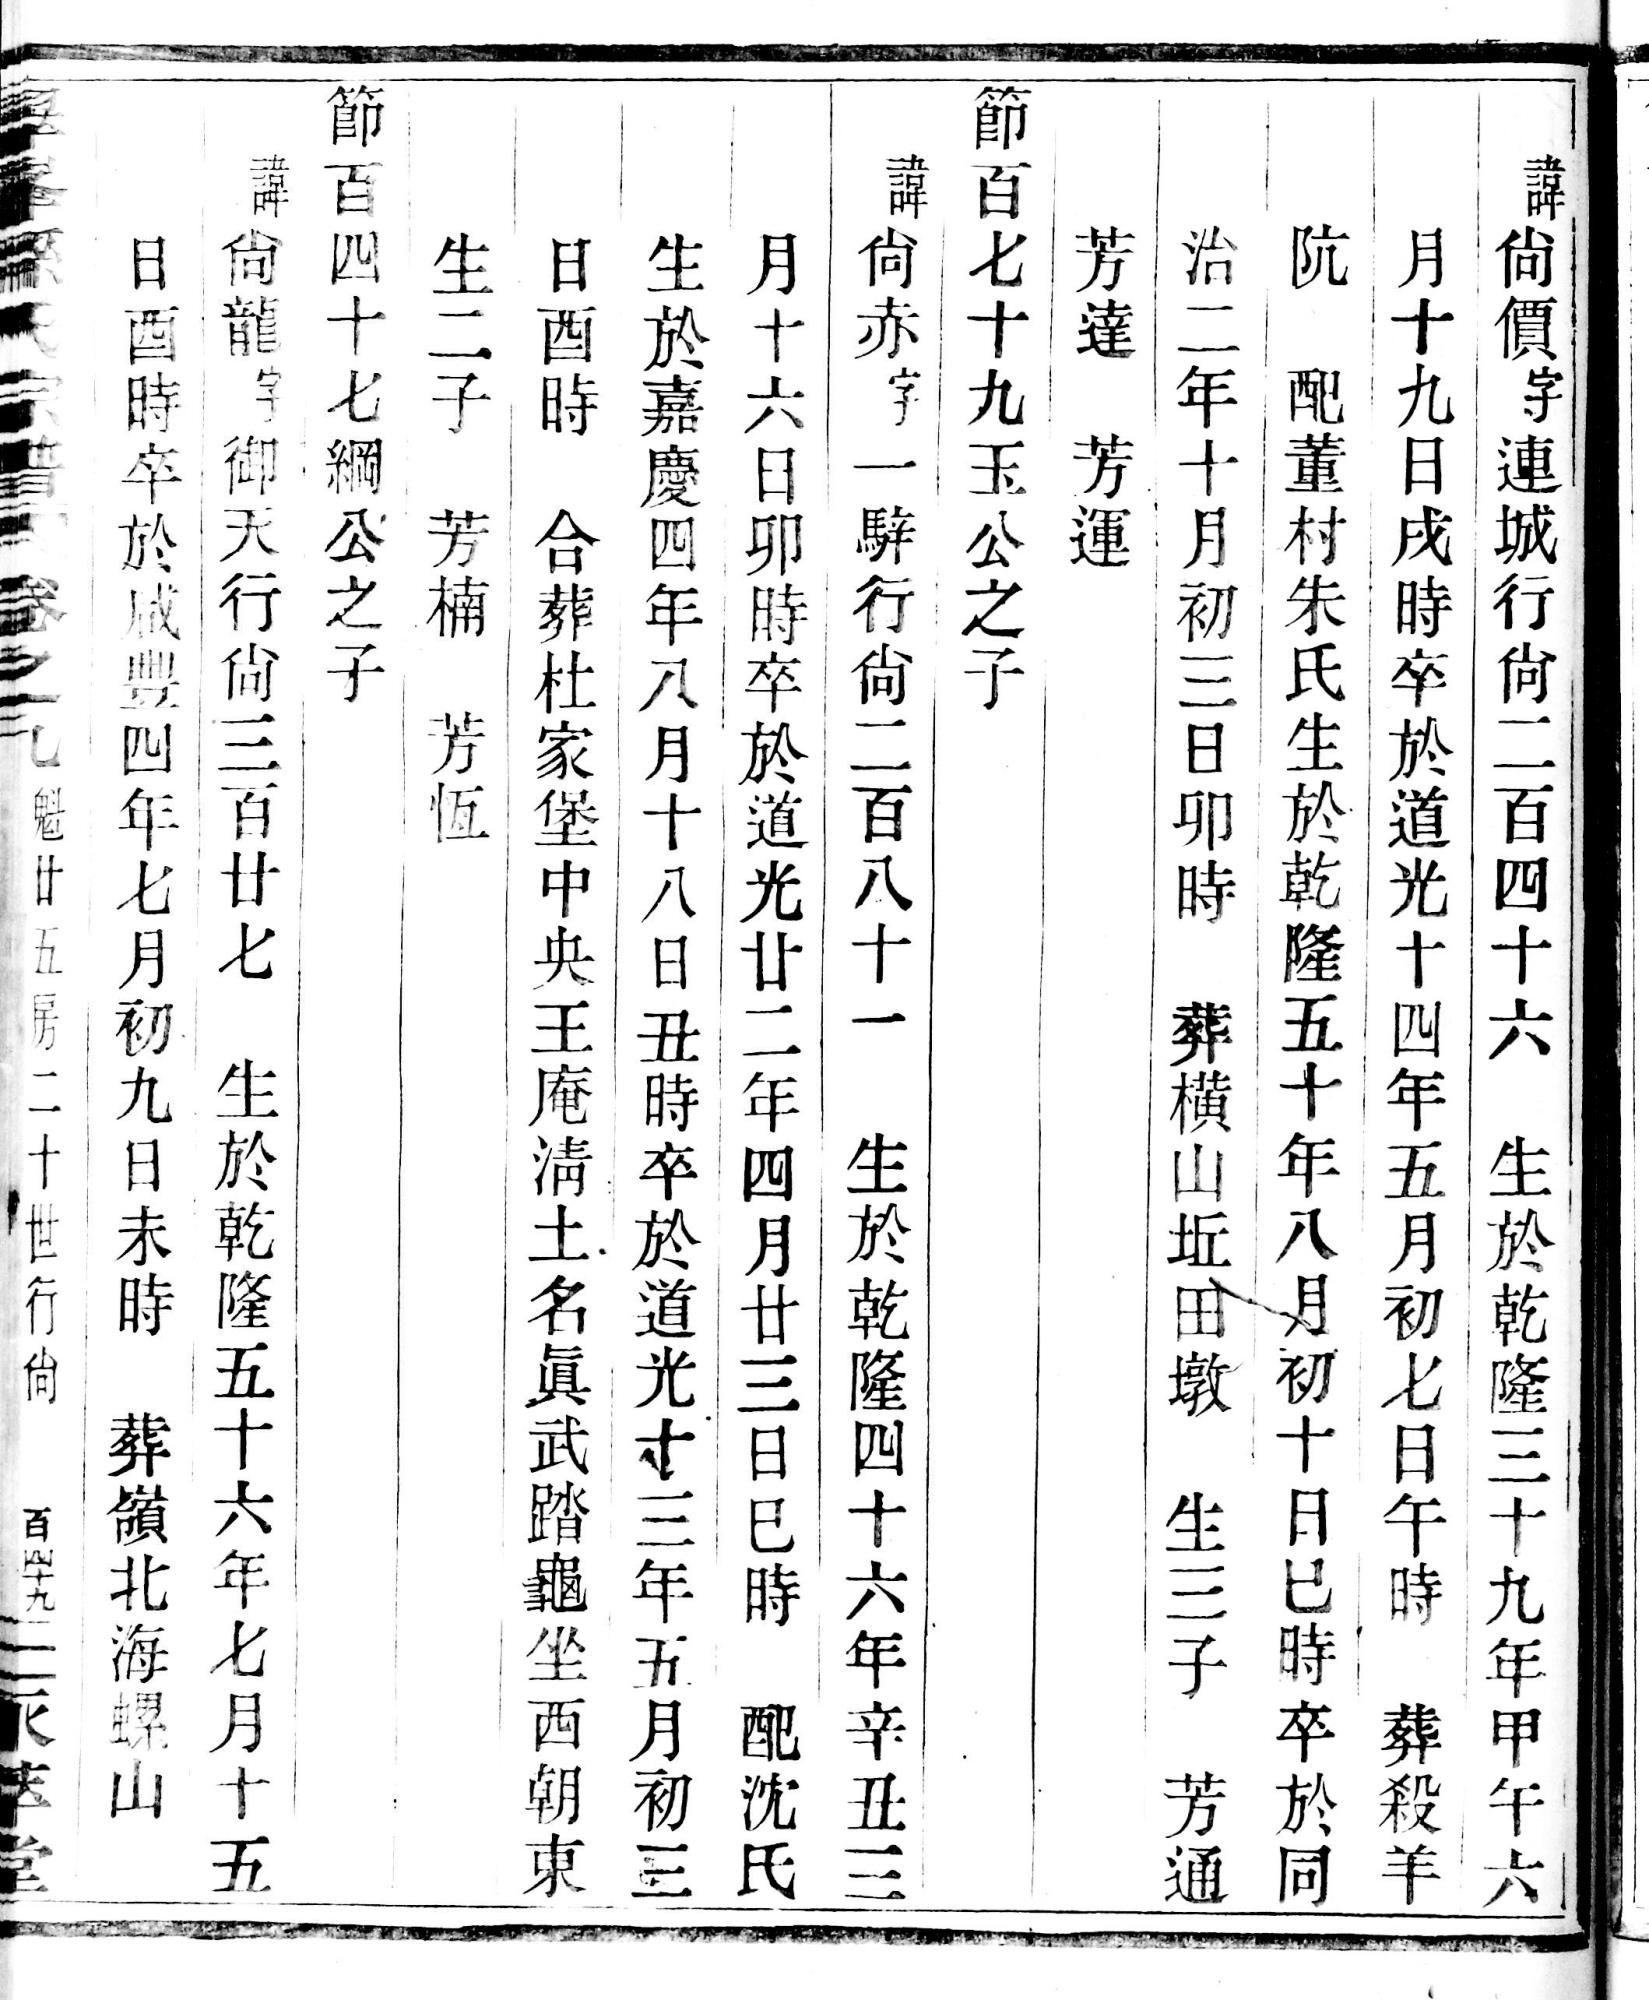 諱尙價字連城行尙二百四十六　生於乾隆三十九年甲午六
月十九日戌時卒於道光十四年五月初七日午時　葬殺羊
阬　配董村朱氏生於乾隆五十年八月初十日巳時卒於同
治二年十月初三日卯時　葬橫山坵田墩　生三子　芳通
芳達　芳運
節百七十九玉公之子
諱尙赤字一騂行尙二百八十一　生於乾隆四十六年辛丑三
月十六日卯時卒於道光廿二年四月廿三日巳時　配沈氏
生於嘉慶四年八月十八日丑時卒於道光十三年五月初三
日酉時　合葬杜家堡中央王庵淸土名眞武踏龜坐西朝東
生二子　芳楠　芳恆
節百四十七綱公之子
諱尙龍字御天行尙三百廿七　生於乾隆五十六年七月十五
日酉時卒於咸豐四年七月初九日未時　葬嶺北海螺山
氏宗譜　卷之一七　魁廿五房二十世行尙　百四十九　堂